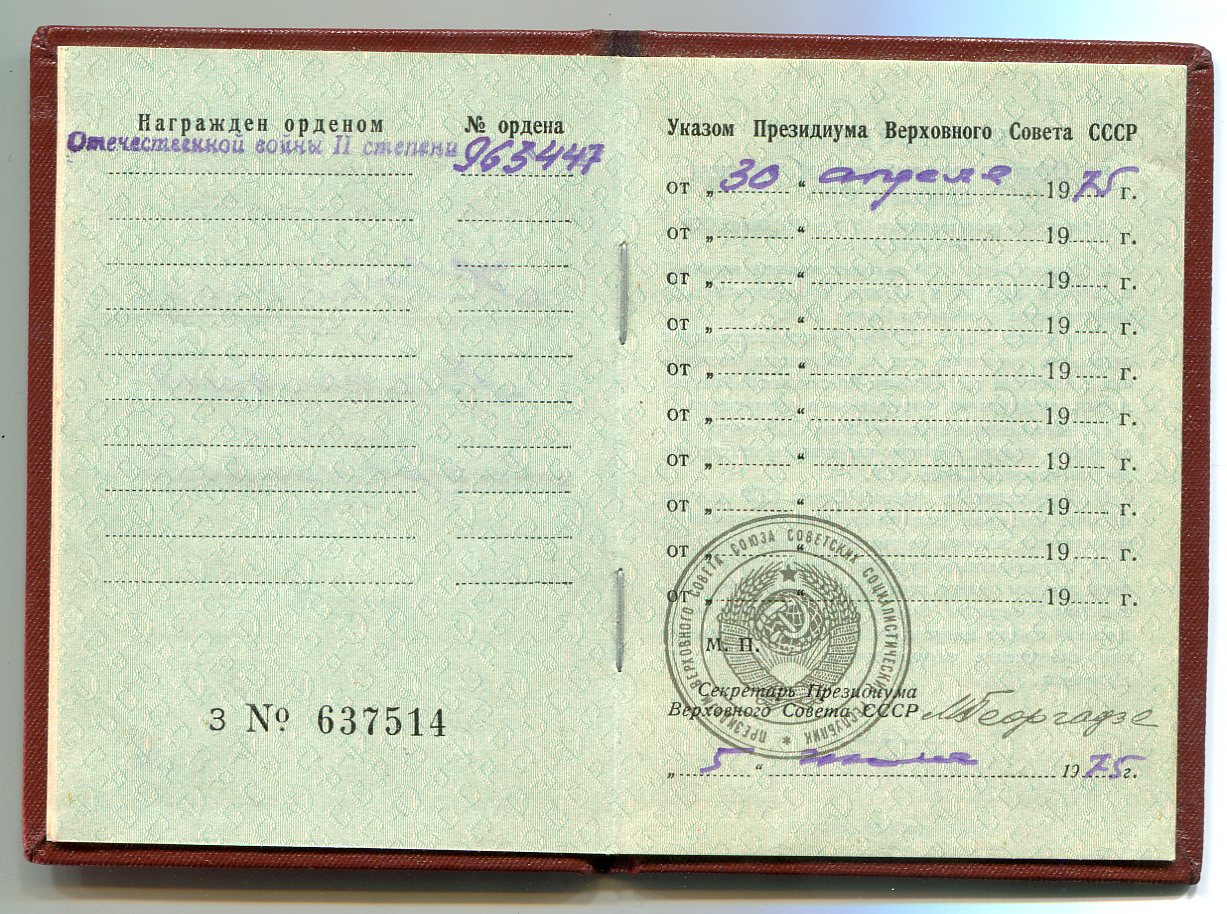 Награжден орденом № ордена
Отечественной войны II степени 963447
З № 637514
Указом Президиума Верховного Совета СССР
от „ 30 “ апреля 1975 г.
от „ “ 19 г.
от „ “ 19 г.
от „ “ 19 г.
от „ “ 19 г.
от „ “ 19 г.
от „ “ 19 г.
от „ “ 19 г.
от „ “ 19 г.
от „ “ 19 г.
ПРЕЗИДИУМ ВЕРХОВНОГО СОВЕТА СОЮЗА СОВЕТСКИХ СОЦИАЛИСТИЧЕСКИХ РЕСПУБЛИК
М. П.
Секретарь Президиума
Верховного Совета СССР МГеоргадзе
„ 5 “ 1975 г.